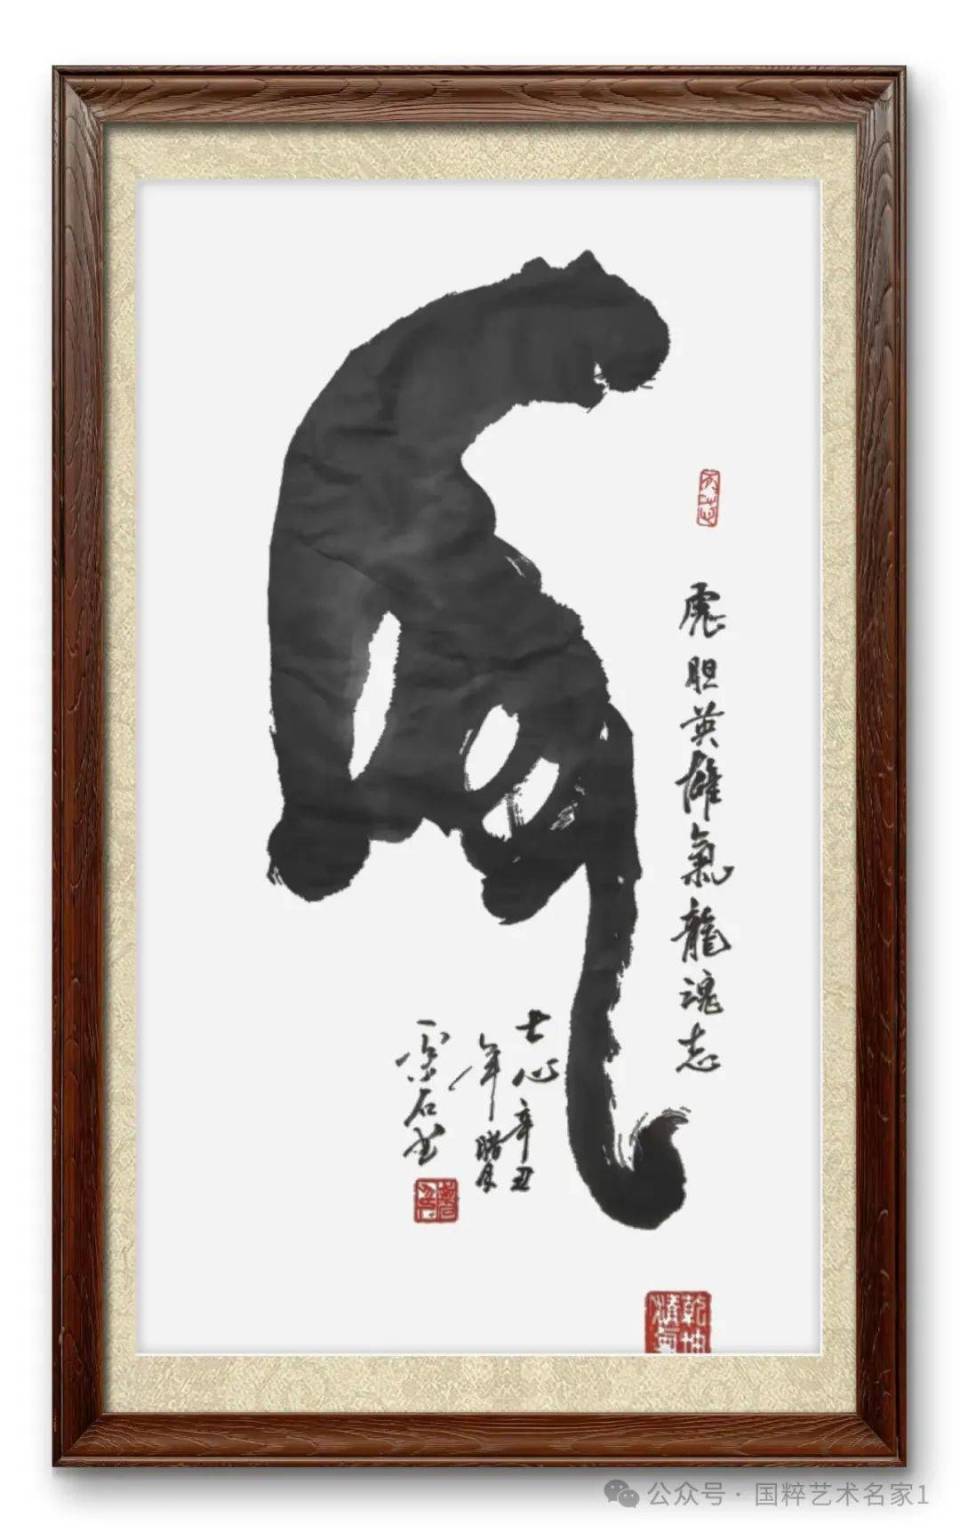 虎胆英雄氣龍魂志
士心辛丑
年腊月
雲石书
乾坤
公众号 · 国粹艺术名家1